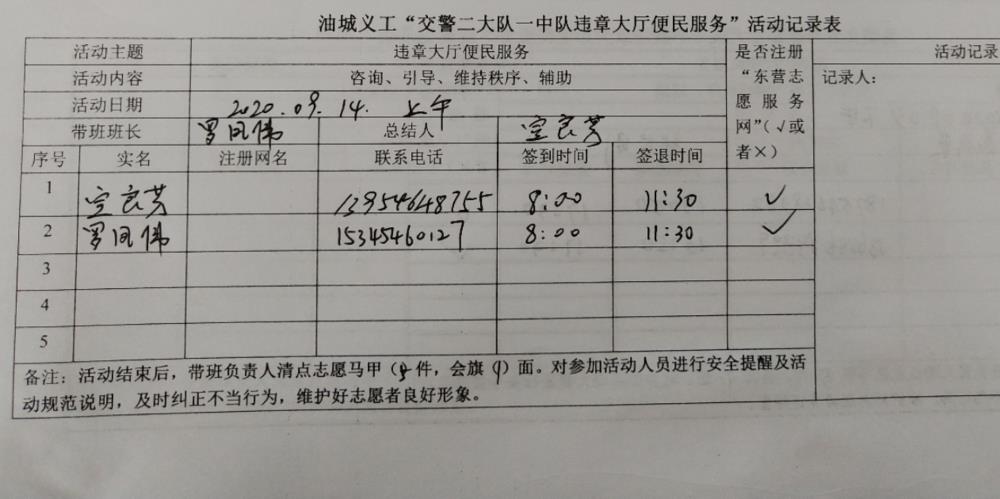 油城义工“交警二大队一中队违章大厅便民服务”活动记录表
活动主题 违章大厅便民服务 是否注册“东营志愿服务网”(√或者×) 活动记录
活动内容 咨询、引导、维持秩序、辅助 记录人：
活动日期 2020.09.14. 上午
带班班长 罗凤伟 总结人 宝良芳
序号 实名 注册网名 联系电话 签到时间 签退时间
1 宝良芳 13954648755 8:00 11:30 ✓
2 罗凤伟 15345460127 8:00 11:30 ✓
3
4
5
备注：活动结束后，带班负责人清点志愿马甲（ 件，会旗（ ）面。对参加活动人员进行安全提醒及活
动规范说明，及时纠正不当行为，维护好志愿者良好形象。